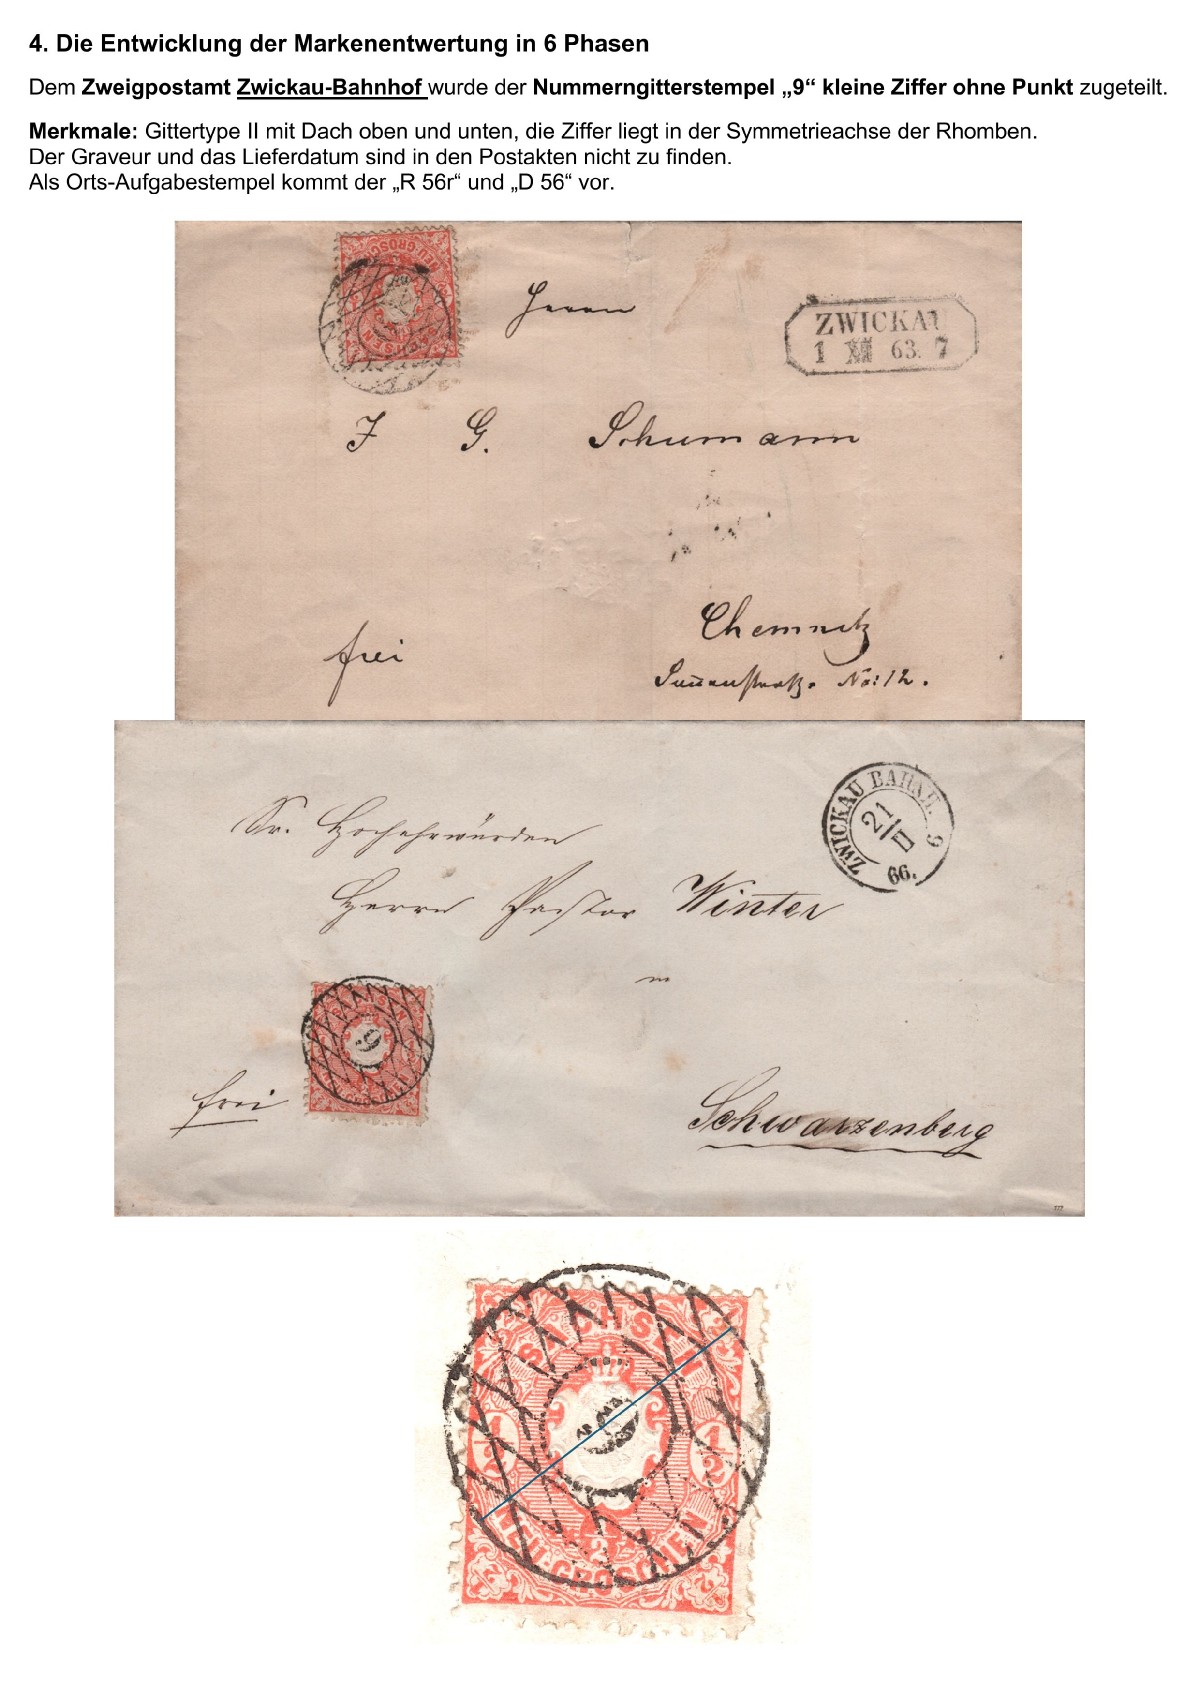 4. Die Entwicklung der Markenentwertung in 6 Phasen
Dem Zweigpostamt Zwickau-Bahnhof wurde der Nummerngitterstempel „9“ kleine Ziffer ohne Punkt zugeteilt.
Merkmale: Gittertype II mit Dach oben und unten, die Ziffer liegt in der Symmetrieachse der Rhomben.
Der Graveur und das Lieferdatum sind in den Postakten nicht zu finden.
Als Orts-Aufgabestempel kommt der „R 56r“ und „D 56“ vor.
Herrn
ZWICKAU
1 XII 63. 7
J G. Schumann
Chemnitz
frei
No: 12.
ZWICKAU BAHNH. 9
21/II
66.
Sr. Hochehrwürden
Herrn Pastor Winter
in
SACHSEN
9
NEU-GROSCHEN
frei
Schwarzenberg
SACHSEN
1/2
1/2
9
1/2
NEU-GROSCHEN